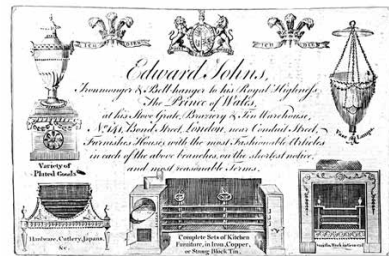 ICH DIEN
ICH DIEN
Edward Johns,
Ironmonger & Bell-hanger to his Royal Highness
The Prince of Wales,
at his Stove Grate, Braziery & Tin Warehouse,
No. 141, Bond Street, London, near Conduit Street,
Furnishes Houses, with the most Fashionable Articles
in each of the above branches, on the shortest notice,
and most reasonable Terms,
Variety of
Plated Goods
Hardware, Cutlery, Japans,
&c.
Complete Sets of Kitchen
Furniture, in Iron, Copper,
or Strong Block Tin,